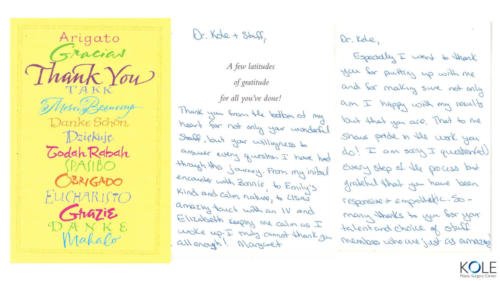 Arigato
Gracias
Thank You
TAKK
Merci Beaucoup
Danke Schön
Dziękuje
Todah Rabah
SPASIBO
OBRIGADO
EUCHARISTO
Grazie
DANKE
Mahalo
Dr. Kole + Staff,
A few latitudes
of gratitude
for all you've done!
Thank you from the bottom of my
heart for not only your wonderful
Staff, but your willingness to
answer every question I have had
through this journey. From my initial
encounter with Bonnie, to Emily's
Kind and calm nature, to Lisa's
amazing touch with an IV and
Elizabeth keeping me calm as I
woke up. I truly cannot thank you
all enough! Margaret
Dr. Kole,
Especially I want to thank
you for putting up with me
and for making sure not only
am I happy with my results
but that you are. That to me
shows pride in the work you
do! I am sorry I question(ed)
every step of the process but
grateful that you have been
responsive + empathetic. So -
many thanks to you for your
talent and choice of staff
members who are just as amazing!
KOLE
Plastic Surgery Center